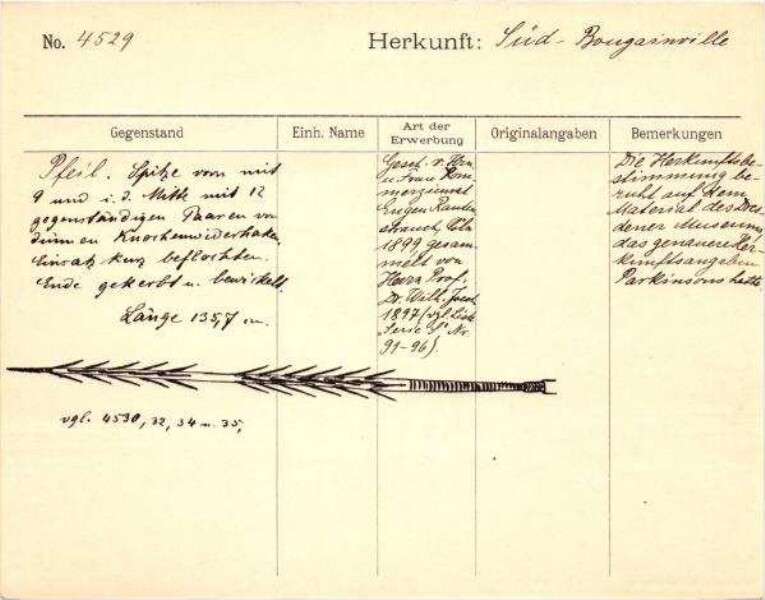 No. 4529
Herkunft: Süd-Bougainville
Gegenstand
Einh. Name
Art der Erwerbung
Originalangaben
Bemerkungen
Pfeil. Spitze vorn mit
9 und i. d. Mitte mit 12
gegenständigen Paaren von
dünnen Knochenwiderhaken.
Einsatz kurz beflochten.
Ende gekerbt u. bewickelt.
Länge 135,7 cm.
Gesch. v. Hrn
u. Frau Kom
merzienrat
Eugen Rauten
strauch, Cöln
1899, gesam
melt von
Herrn Prof.
Dr. Wilh. Joest
1897 (vgl. Liste
Serie S Nr.
91-96).
Die Herkunftsbe-
stimmung be-
ruht auf dem
Material des Dres-
dener Museums,
das genauere Her-
kunftsangaben
Parkinsons hatte.
vgl. 4530, 32, 34 u. 35,